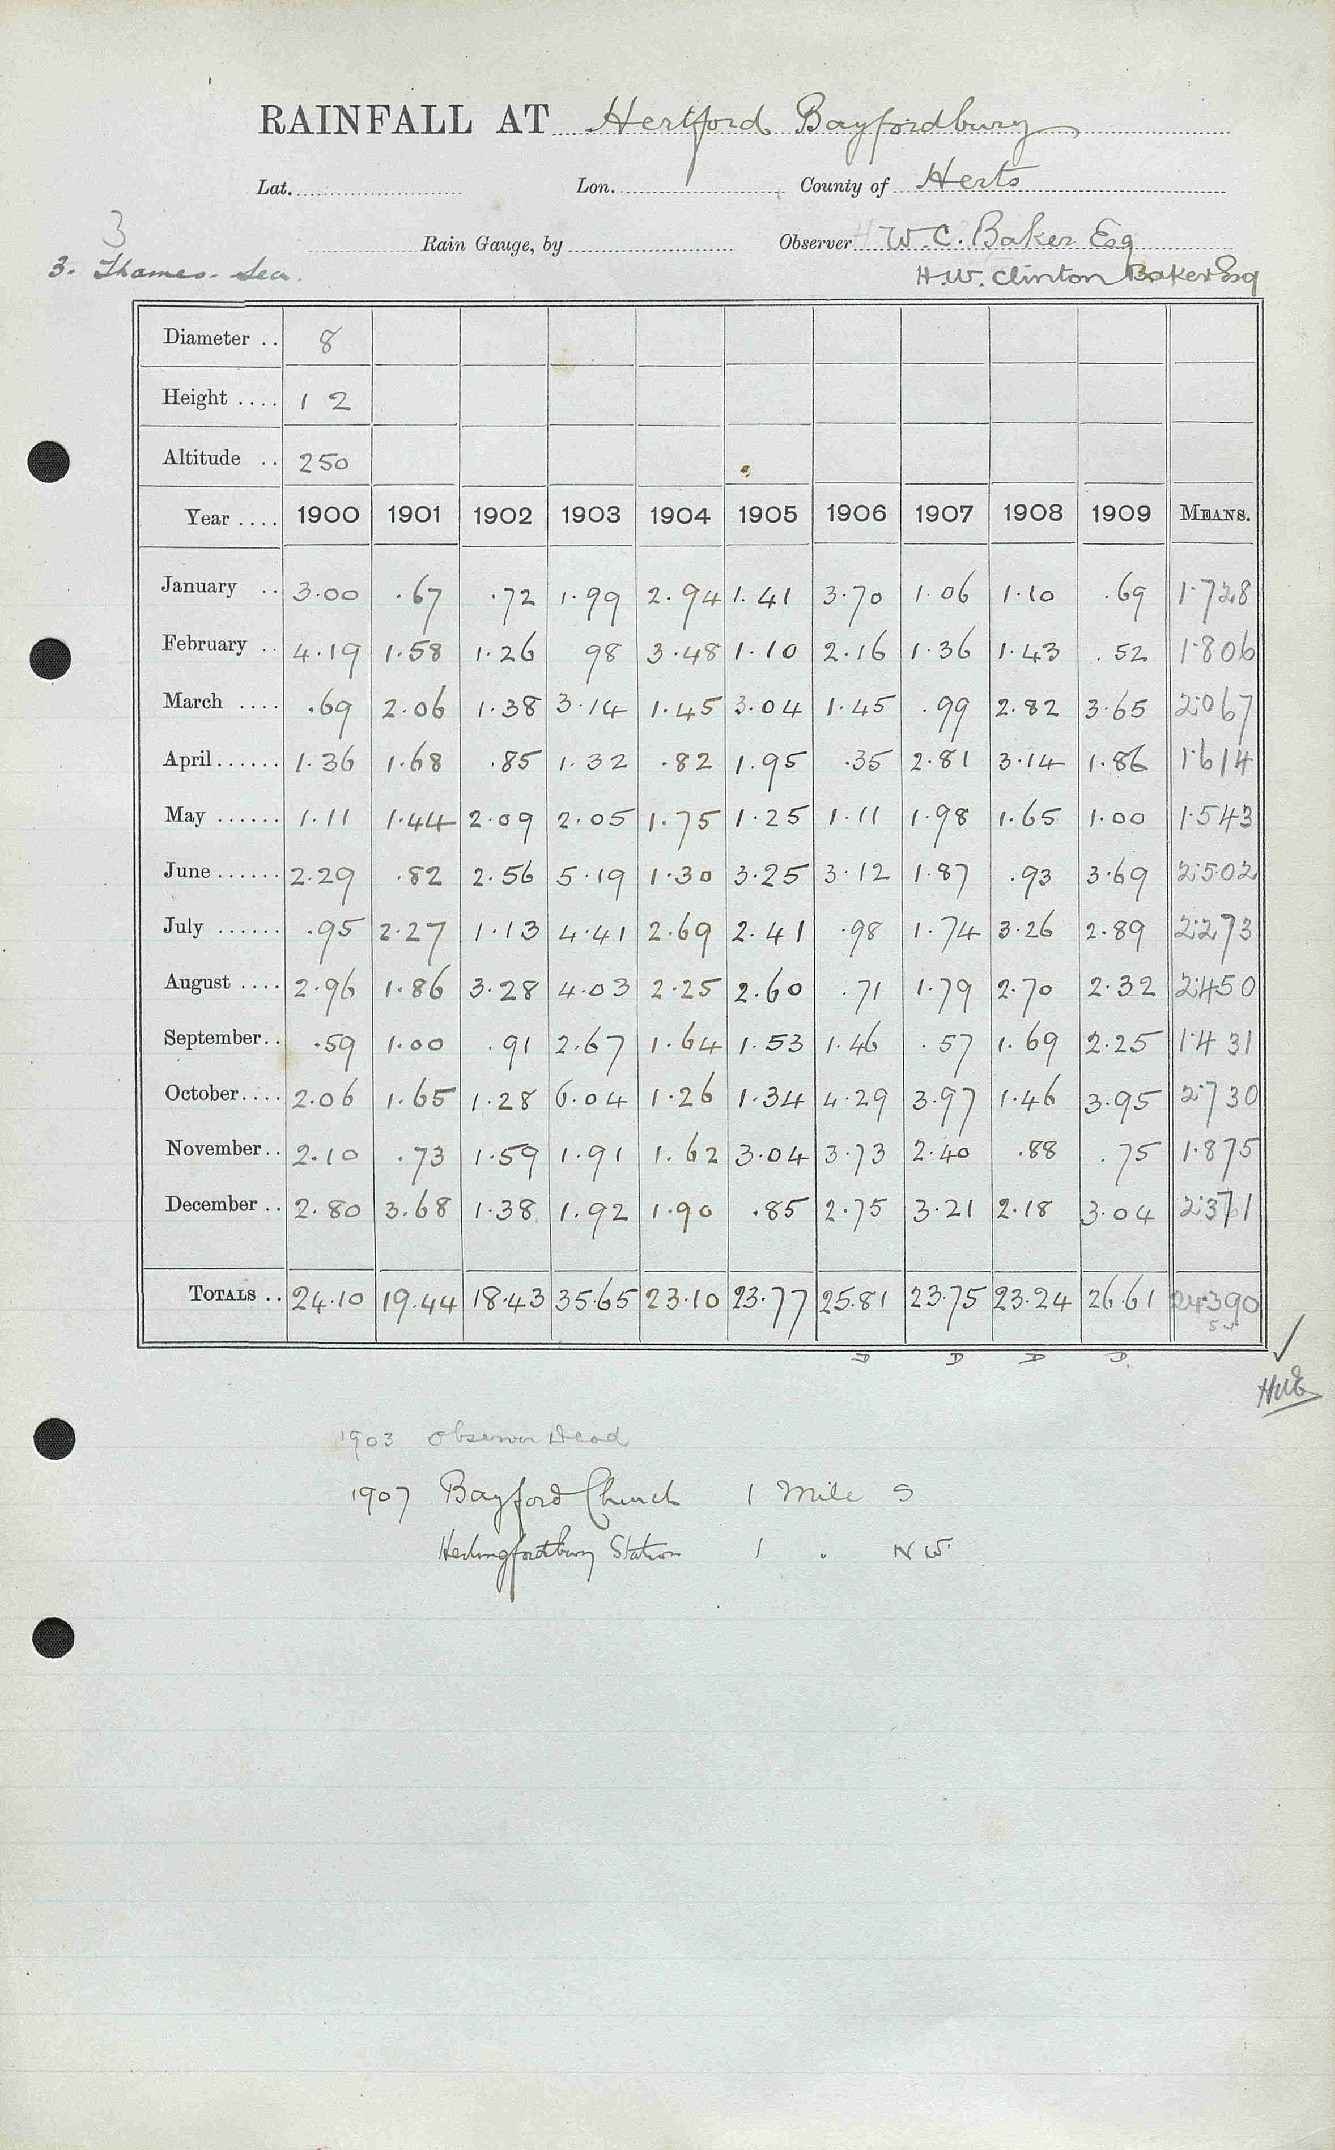 RAINFALL AT Hertford Bayfordbury
Lat. Lon. County of Herts
3
Rain Gauge, by Observer W. C. Baker Esq
3. Thames. Lea. H. W. Clinton Baker Esq
Diameter .. 8
Height .... 1 2
Altitude .. 250
Year .... 1900 1901 1902 1903 1904 1905 1906 1907 1908 1909 MEANS.
January .. 3.00 .67 .72 1.99 2.94 1.41 3.70 1.06 1.10 .69 1.728
February .. 4.19 1.58 1.26 98 3.48 1.10 2.16 1.36 1.43 .52 1.806
March .... .69 2.06 1.38 3.14 1.45 3.04 1.45 .99 2.82 3.65 2.067
April...... 1.36 1.68 .85 1.32 .82 1.95 .35 2.81 3.14 1.86 1.614
May ...... 1.11 1.44 2.09 2.05 1.75 1.25 1.11 1.98 1.65 1.00 1.543
June...... 2.29 .82 2.56 5.19 1.30 3.25 3.12 1.87 .93 3.69 2.502
July ...... .95 2.27 1.13 4.41 2.69 2.41 .98 1.74 3.26 2.89 2.273
August .... 2.96 1.86 3.28 4.03 2.25 2.60 .71 1.79 2.70 2.32 2.450
September.. .59 1.00 .91 2.67 1.64 1.53 1.46 .57 1.69 2.25 1.431
October.... 2.06 1.65 1.28 6.04 1.26 1.34 4.29 3.97 1.46 3.95 2.730
November.. 2.10 .73 1.59 1.91 1.62 3.04 3.73 2.40 .88 .75 1.875
December .. 2.80 3.68 1.38 1.92 1.90 .85 2.75 3.21 2.18 3.04 2.371
TOTALS .. 24.10 19.44 18.43 35.65 23.10 23.77 25.81 23.75 23.24 26.61 24.390
D D D D
1903 Observer Dead
1907 Bayford Church 1 Mile S
Hertingfordbury Station 1 . N W.